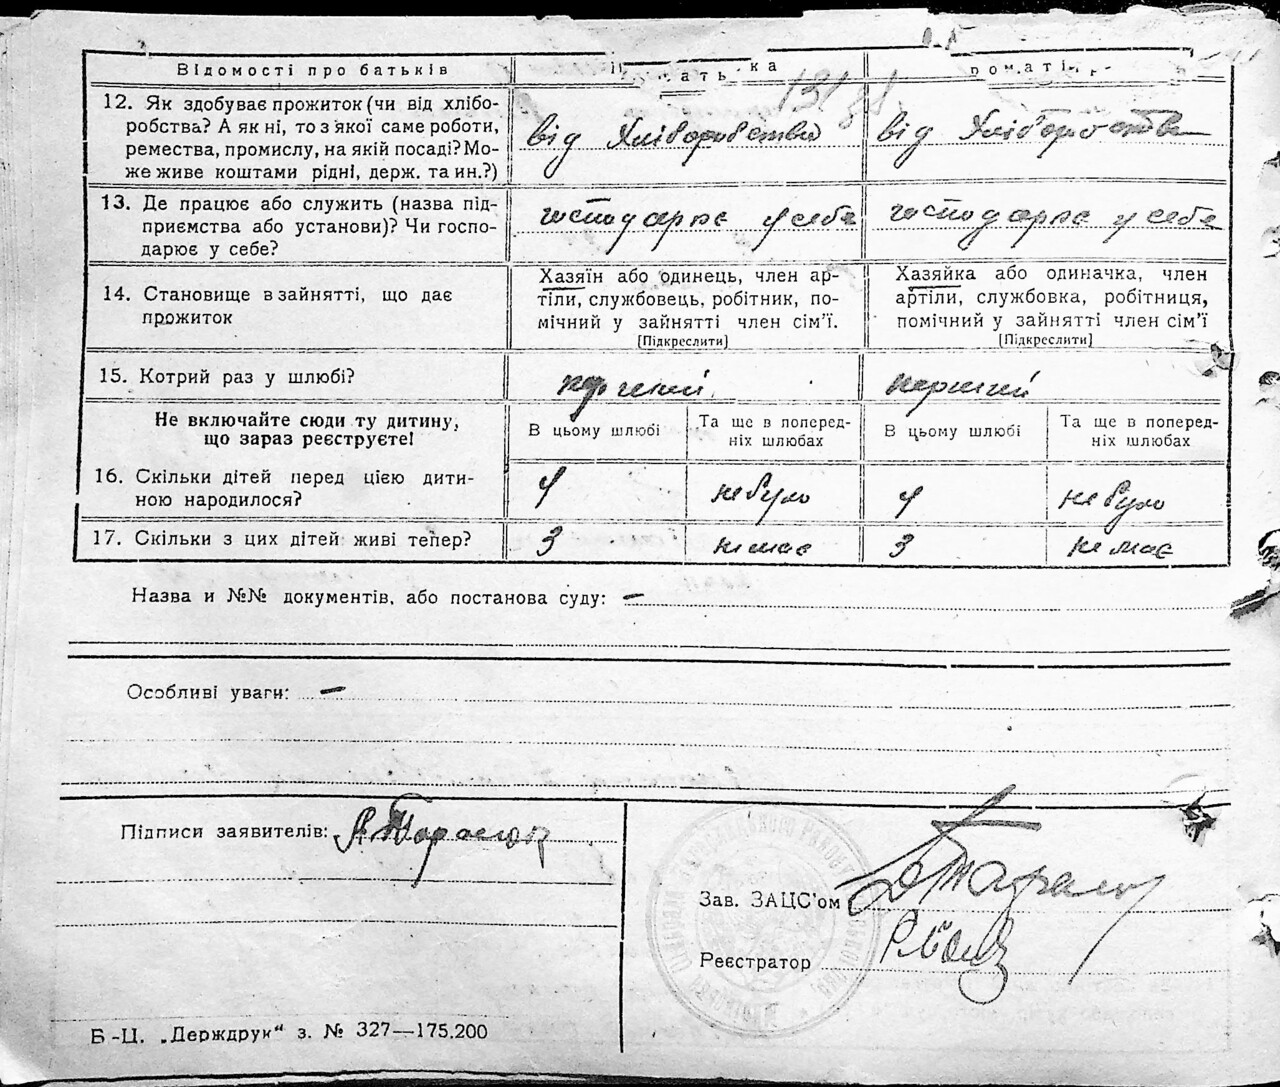 Відомості про батьків
12. Як здобуває прожиток (чи від хлібо-
робства? А як ні, то з якої саме роботи,
ремества, промислу, на якій посаді? Мо-
же живе коштами рідні, держ. та ин.?)
від Хліборобства
від Хліборобства
13. Де працює або служить (назва під-
приємства або установи)? Чи госпо-
дарює у себе?
господарює у себе
господарює у себе
14. Становище в зайнятті, що дає
прожиток
Хазяїн або одинець, член ар-
тіли, службовець, робітник, по-
мічний у зайнятті член сім’ї.
[Підкреслити]
Хазяйка або одиначка, член
артіли, службовка, робітниця,
помічний у зайнятті член сім’ї
[Підкреслити]
15. Котрий раз у шлюбі?
перший
перший
Не включайте сюди ту дитину,
що зараз реєструєте!
В цьому шлюбі
Та ще в поперед-
ніх шлюбах
В цьому шлюбі
Та ще в поперед-
ніх шлюбах
16. Скільки дітей перед цією дити-
ною народилося?
4
не було
4
не було
17. Скільки з цих дітей живі тепер?
3
немає
3
немає
Назва и №№ документів, або постанова суду: —
Особливі уваги: —
Підписи заявителів:
Зав. ЗАЦС’ом
Реєстратор
Б-Ц. „Держдрук“ з. № 327—175.200